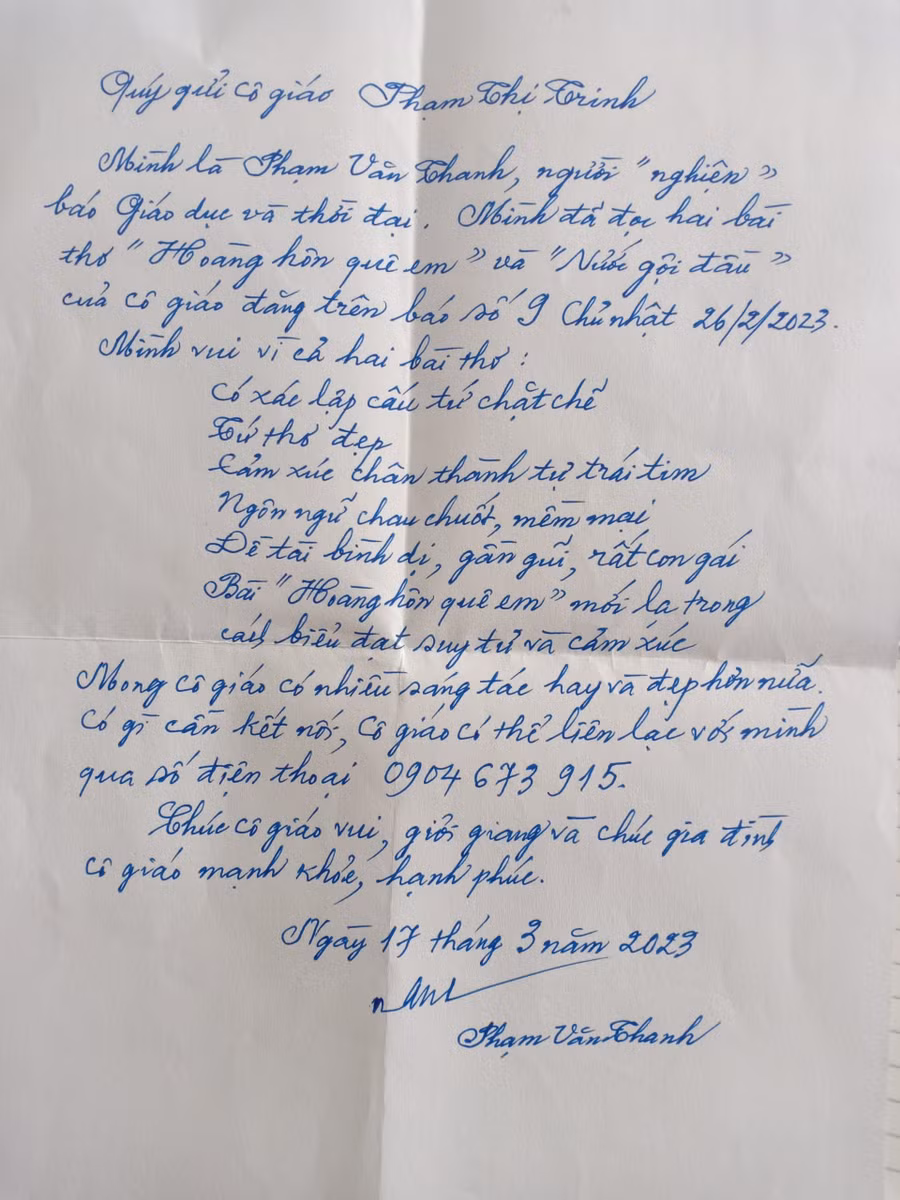 Quý gửi cô giáo Phạm Thị Trinh
Mình là Phạm Văn Thanh, người "nghiện"
báo Giáo dục và thời đại. Mình đã đọc hai bài
thơ "Hoàng hôn quê em" và "Nước gội đầu"
của cô giáo đăng trên báo số 9 Chủ nhật 26/2/2023.
Mình vui vì cả hai bài thơ:
Có xác lập cấu tứ chặt chẽ
Tứ thơ đẹp
Cảm xúc chân thành tự trái tim
Ngôn ngữ chau chuốt, mềm mại
Đề tài bình dị, gần gũi, rất con gái
Bài "Hoàng hôn quê em" mới lạ trong
cách biểu đạt suy tư và cảm xúc
Mong cô giáo có nhiều sáng tác hay và đẹp hơn nữa.
Có gì cần kết nối, cô giáo có thể liên lạc với mình
qua số điện thoại 0904 673 915.
Chúc cô giáo vui, giỏi giang và chúc gia đình
cô giáo mạnh khỏe, hạnh phúc.
Ngày 17 tháng 3 năm 2023
Phạm Văn Thanh